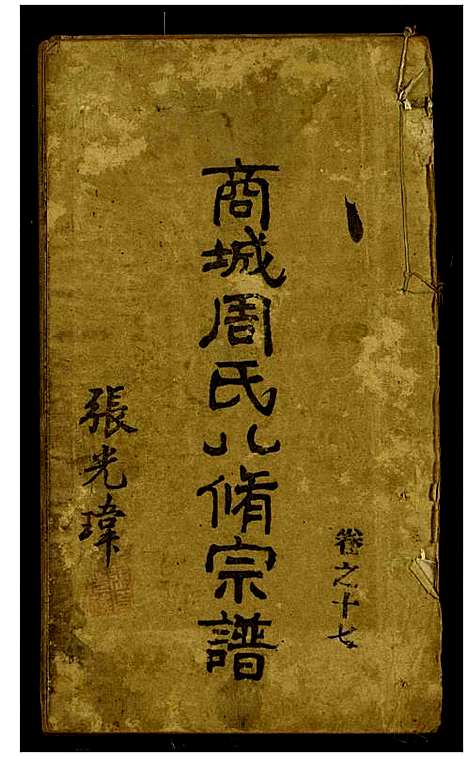 卷之十七
商城周氏八脩宗譜
張光瑋